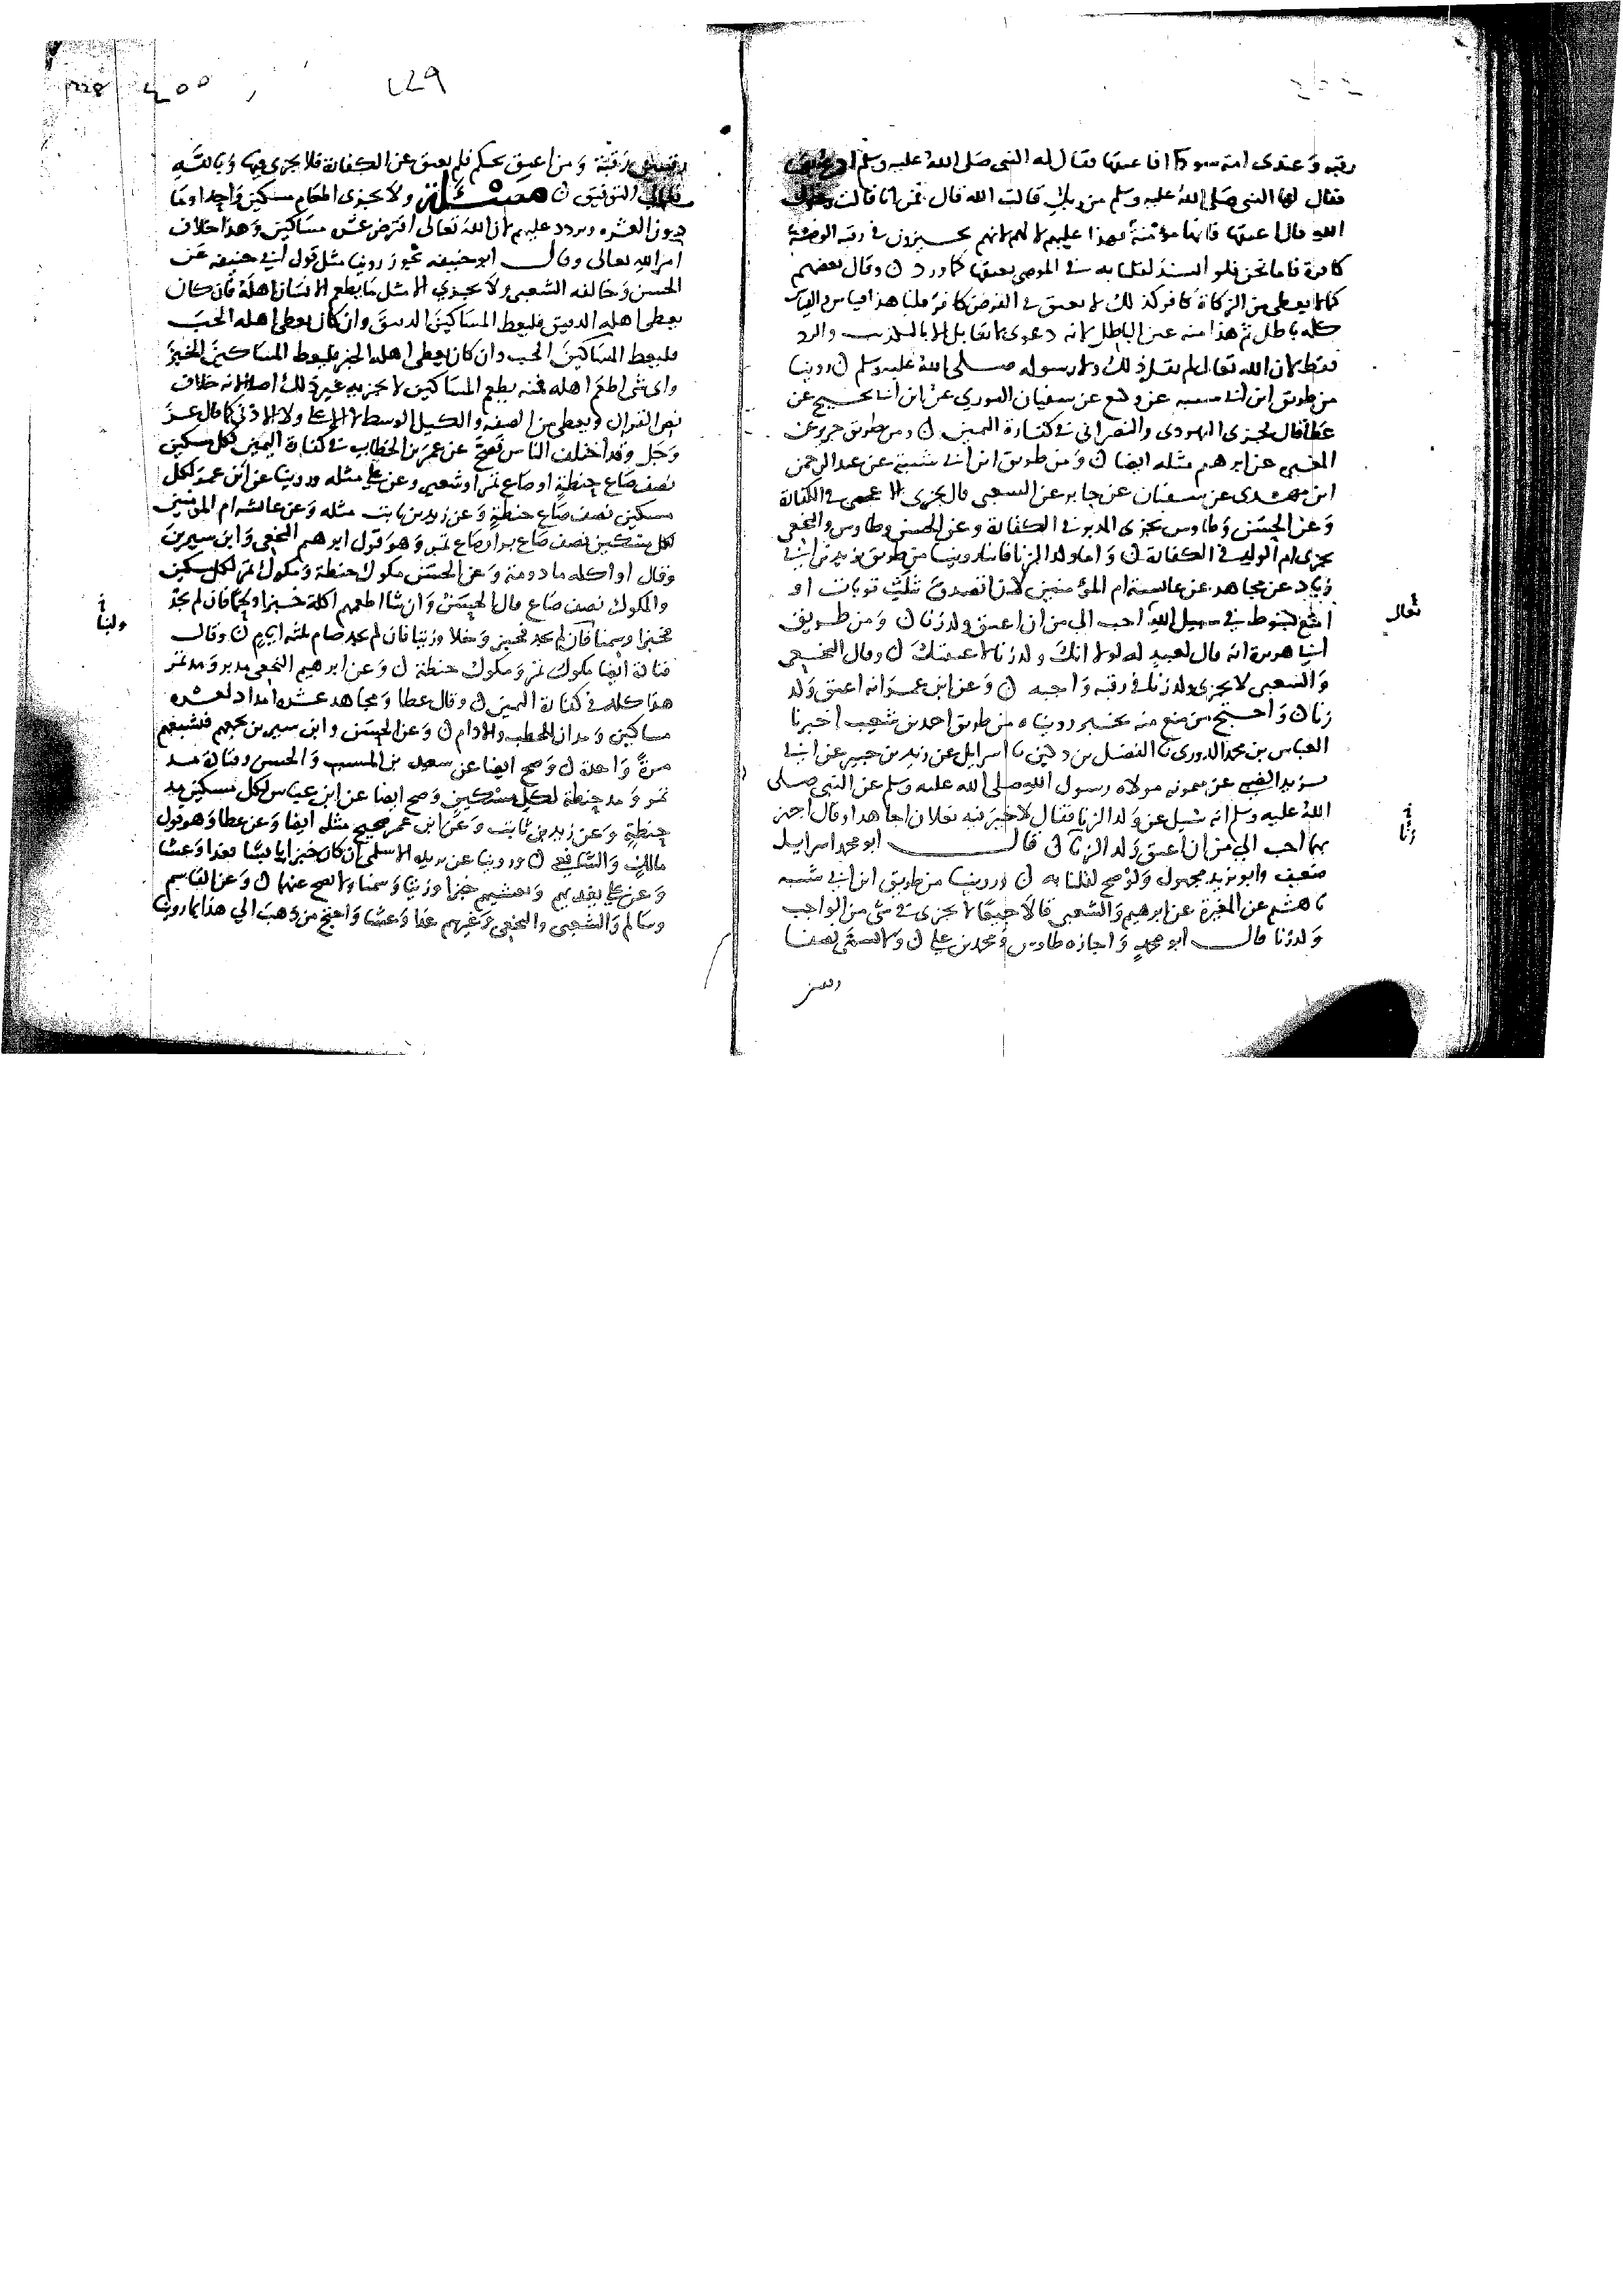 رقبه وعندى امة سودا افاعتقها فقال له النبي صلى الله عليه وسلم ادع بها
فقال لها النبي صلى الله عليه وسلم من ربك قالت الله قال فمن انا قالت رسول
الله قال اعتقها فانها مؤمنة فهذا عليهم لا لهم لانهم يجيزون في رقبة الوصية
كافرة فاما نحن فلو اسند لقلنا به في الموصي بعتقها كما ورد ن وقال بعضهم
كما لا يعطى من الزكاة كافر كذلك لا يعتق في الفرض كافر قلنا هذا قياس والقياس
كله باطل ثم هذا منه عين الباطل لانه دعوى لا تقابل الا بالتكذيب والرد
فقط لان الله تعالى لم يقل ذلك ولا رسوله صلى الله عليه وسلم ن روينا
من طريق ابن ابي شيبه عن وكيع عن سفيان الثوري عن ابن ابي نجيح عن
عطا قال يجزى اليهودى والنصراني في كفارة اليمين ن ومن طريق جرير عن
المغيره عن ابرهيم مثله ايضا ن ومن طريق ابن ابي شيبة عن عبد الرحمن
ابن مهدى عن سفيان عن جابر عن الشعبي قال يجزى الاعمى في الكفارة
وعن الحسن وطاوس يجزى المدبر في الكفارة وعن الحسن وطاوس والنخعي
يجزى ام الولد في الكفارة ن واما ولد الزنا فاننا روينا من طريق يزيد بن ابي
زياد عن مجاهد عن عائشة ام المؤمنين لان اتصدق بثلث نويات او
امتع بسوط في سبيل الله احب الي من ان اعتق ولد زنا ن ومن طريق
ابي هريرة انه قال لعبد له لولا انك ولد زنا لاعتقتك ن وقال النخعي
والشعبي لا يجزى ولد زنا في رقبه واجبه ن وعن ابن عمر انه اعتق ولد
زنا ن واحتج من منع منه بخبر رويناه من طريق احمد بن شعيب اخبرنا
العباس بن محمد الدورى نا الفضل بن دكين نا اسرايل عن زيد بن جبير عن ابي
يزيد الضبي عن ميمونه مولاه رسول الله صلى الله عليه وسلم عن النبي صلى
الله عليه وسلم انه سيل عن ولد الزنا فقال لا خير فيه نعلان اجاهد او قال اجهز
بهما احب الي من ان اعتق ولد الزنا ن قال ابو محمد اسرايل
ضعيف وابو يزيد مجهول ولو صح لقلنا به ن وروينا من طريق ابن ابي شيبه
نا هشيم عن المغيرة عن ابرهيم والشعبي قالا جميعا لا يجزى في شى من الواجب
ولد زنا قال ابو محمد واجازه طاوس ومحمد بن علي ن ولا يسمى نصفا
تعالى
زنا
رقبتين
٤٥٥
٤٢٩
رقبتين رقبة ومن اعتق بحكم فلم يعتق عن الكفارة فلا يجزى فيها وبالله
تعالى التوفيق ن مسئلة ولا يجزى اطعام مسكين واحد او ما
دون العشره يردد عليهم لان الله تعالى افترض عشره مساكين وهذا خلاف
امر الله تعالى وقال ابو حنيفه يجوز روينا مثل قول ابي حنيفه عن
الحسن وخالفه الشعبي ولا يجزي الا مثل ما يطعم الانسان اهله فان كان
يعطى اهله الدقيق فليعط المساكين الدقيق وان كان يعطى اهله الحب
فليعط المساكين الحب وان كان يعطى اهله الخبز فليعط المساكين الخبز
واى شى اطعم اهله فمنه يطعم المساكين لا يجزيه غير ذلك اصلا لانه خلاف
نص القران ويعطى من الصفه والكيل الوسط لا الاعلا ولا الادنى كما قال عز
وجل وقد اختلف الناس فصح عن عمر بن الخطاب في كفارة اليمين لكل مسكين
نصف صاع حنطة او صاع تمر او شعير وعن علي مثله وروينا عن ابن عمر لكل
مسكين نصف صاع حنطة وعن زيد بن ثابت مثله وعن عائشه ام المومنين
لكل مسكين نصف صاع بر او صاع تمر وهو قول ابرهيم النخعي وابن سيرين
وقال او اكله مادومة وعن الحسن مكوك حنطة ومكوك تمر لكل مسكين
والمكوك نصف صاع قال الحسن وان شا اطعمهم اكلة خبزا ولحما فان لم يجد
فخبزا وسمنا فان لم يجد فخبز وخلا وزيتا فان لم يجد صام ثلثه ايام ن وقال
قتادة ايضا مكوك تمر ومكوك حنطة ن وعن ابرهيم النخعي مد بر ومد تمر
هذا كله في كفارة اليمين ن وقال عطا ومجاهد عشره امداد لعشره
مساكين ومدان للحطب والادام ن وعن الحسن وابن سيرين يجمعهم فيشبعهم
مرة واحدة ن وصح ايضا عن سعيد بن المسيب والحسن وقتادة مد
تمر ومد حنطة لكل مسكين وصح ايضا عن ابن عباس لكل مسكين مد
حنطة وعن زيد بن ثابت وعن ابن عمر صحيح مثله ايضا وعن عطا وهو قول
مالك والشافعي ن وروينا عن بريده الاسلمى ان كان خبزا يابسا فغدا وعشا
وعن علي يغديهم ويعشيهم خبزا وزيتا وسمنا ولا يصح عنه ن وعن القاسم
وسالم والشعبي والنخعي وغيرهم غدا وعشا واحتج من ذهب الي هذا بما روينا
ولبنا